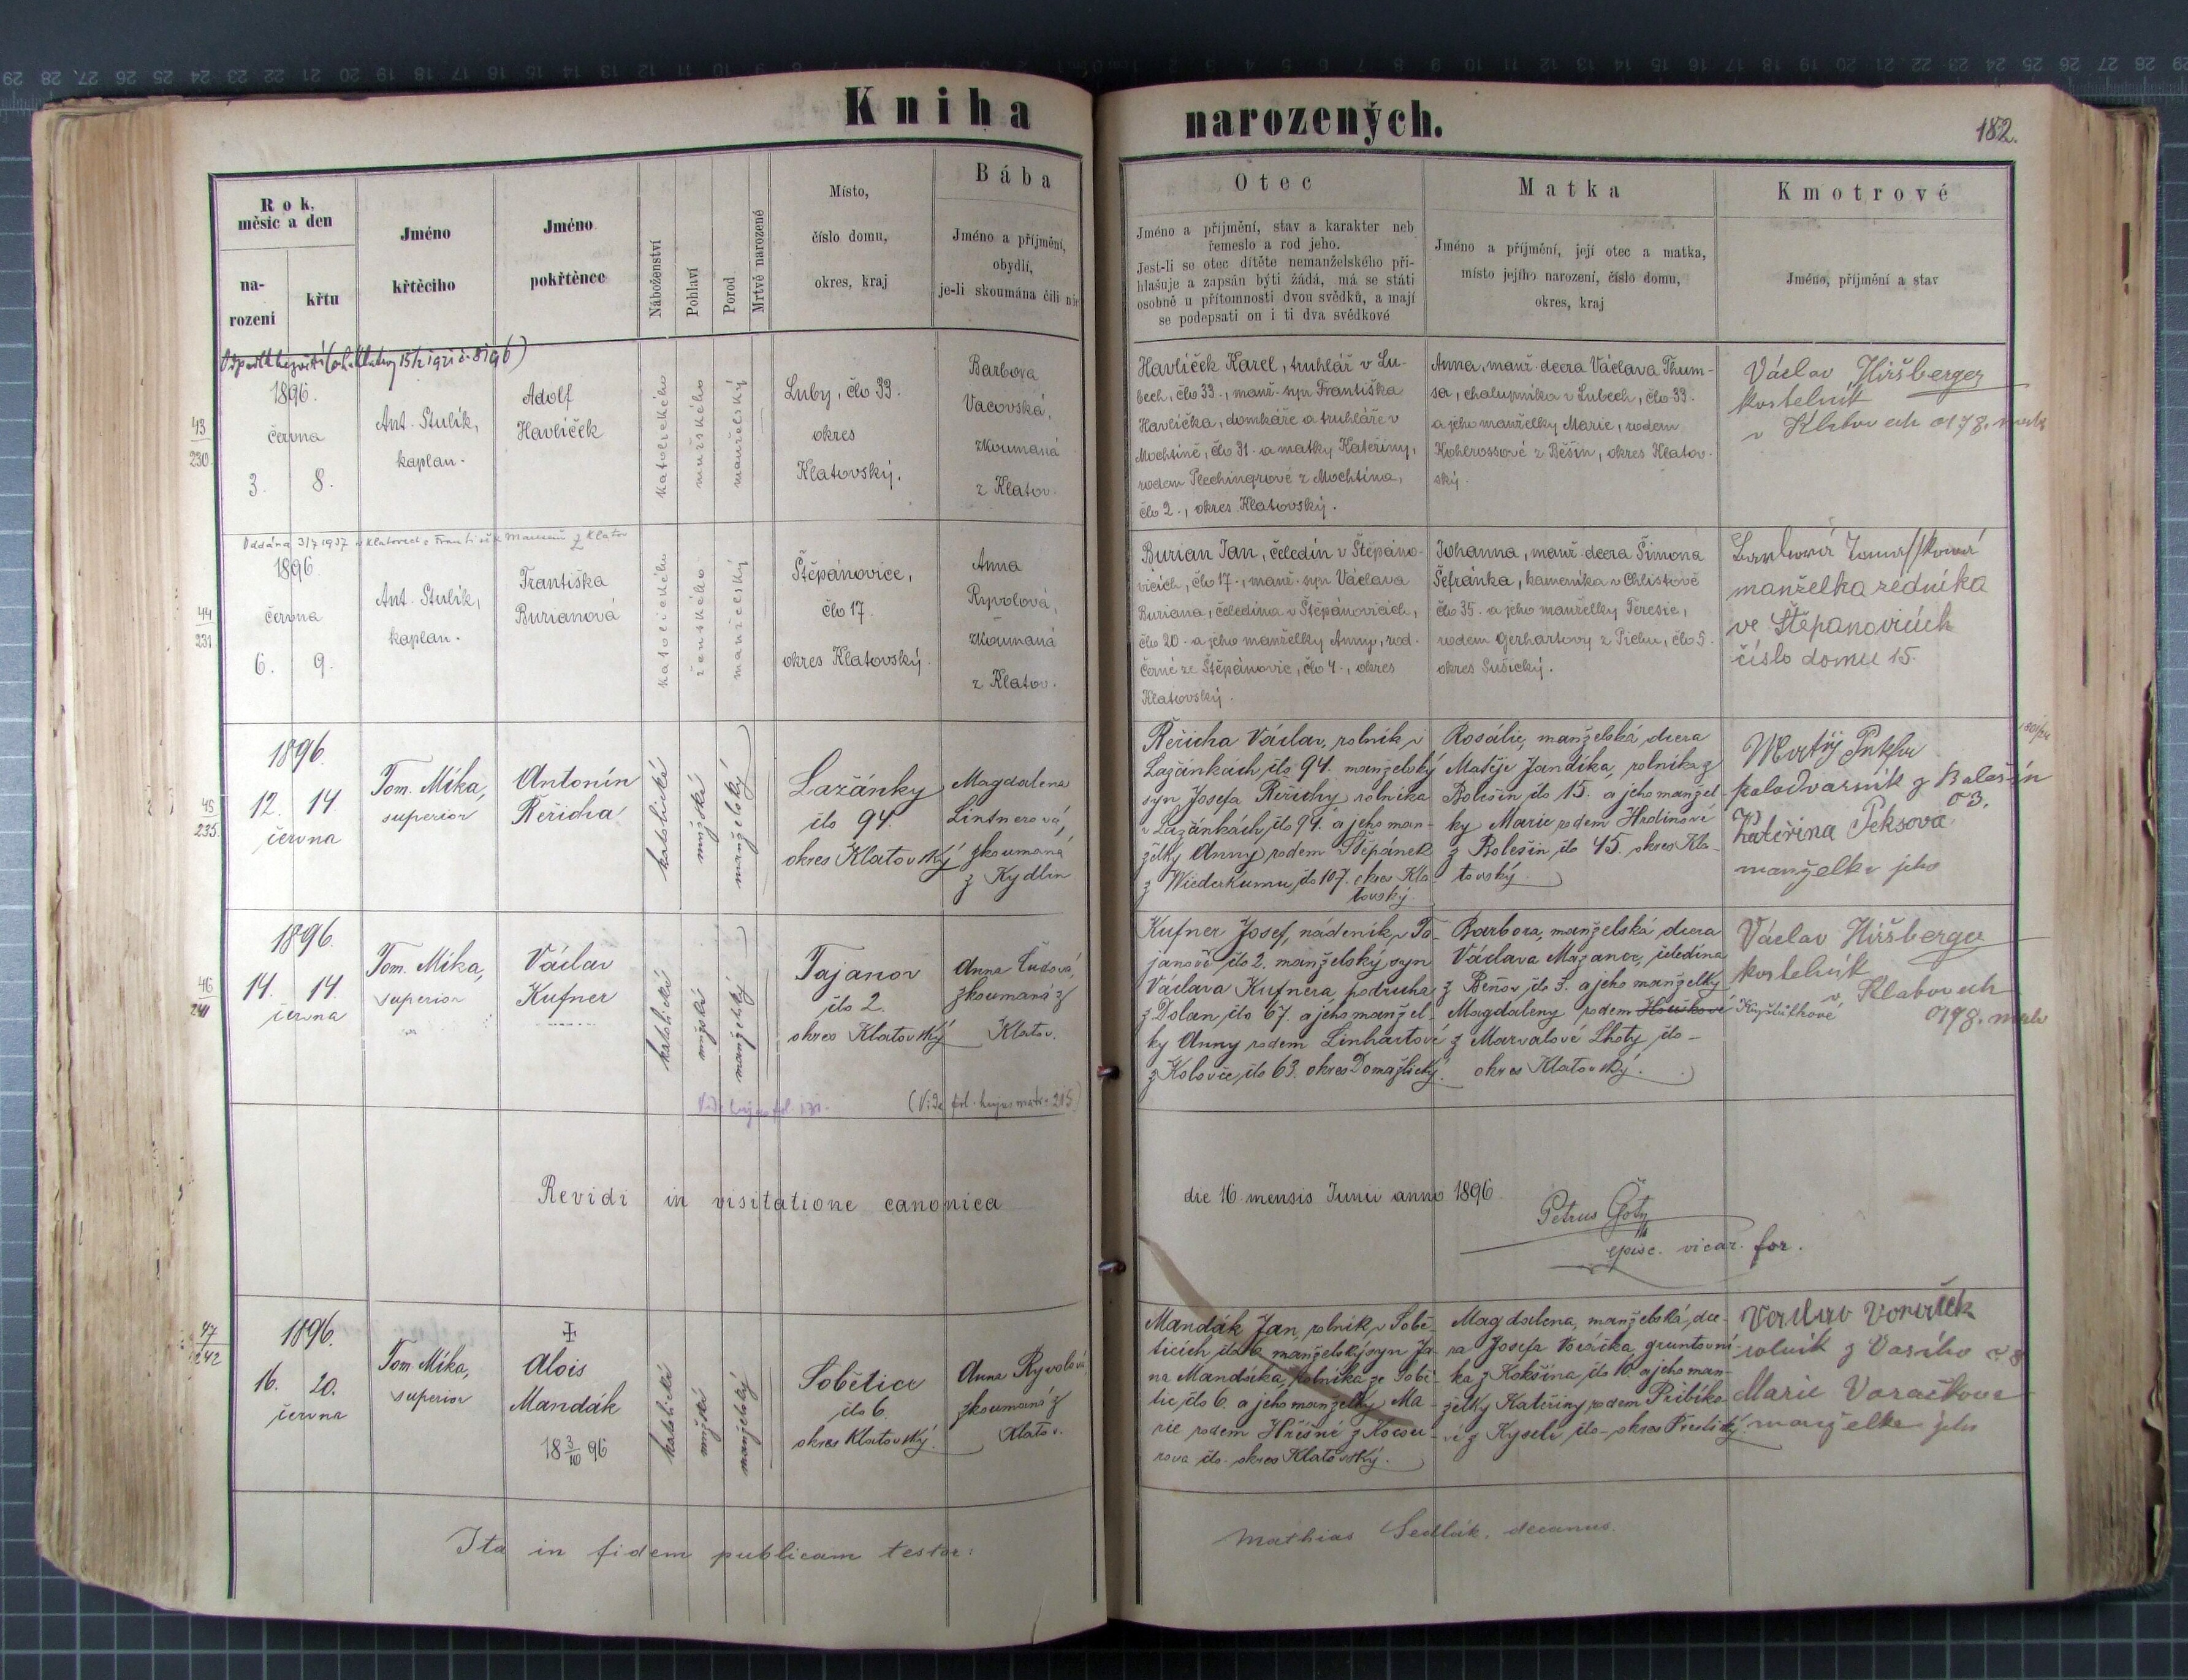 Kniha narozených.
182.
Rok, měsíc a den
na-
rozeni
křtu
Jméno
křtěcího
Jméno
pokřtěnce
Náboženství
Pohlaví
Porod
Mrtvě narozené
Místo,
číslo domu,
okres, kraj
Bába
Jméno a příjmění,
obydlí,
je-li skoumána čili nic
Otec
Jméno a příjmění, stav a karakter neb
řemeslo a rod jeho.
Jest-li se otec dítěte nemanželského při-
hlašuje a zapsán býti žádá, má se státi
osobně u přítomnosti dvou svědků, a mají
se podepsati on i ti dva svědkové
Matka
Jméno a příjmění, její otec a matka,
místo jejího narození, číslo domu,
okres, kraj
Kmotrové
Jméno, příjmění a stav
43
230.
1896.
června
3. 8.
Ant. Stulík,
kaplan.
Adolf
Havlíček
katolického
mužského
manželský
Luby, čís 33.
okres
Klatovský.
Barbora
Vacovská,
zkoumaná
z Klatov.
Havlíček Karel, truhlář v Lu-
bech, čís 33., manž. syn Františka
Havlíčka, domkáře a truhláře v
Mochtíně, čís 31. a matky Kateřiny,
rodem Plechingrové z Mochtína,
čís 2., okres Klatovský.
Anna, manž. dcera Václava Thum-
sa, chalupníka v Lubech, čís 33.
a jeho manželky Marie, rodem
Kohlrossové z Běšin, okres Klatov-
ský.
Václav Hiršberger
kostelník
v Klatovech
44
231
Oddána 31/7 1937 v Klatovech s Františk z Klatov
1896.
června
6. 9.
Ant. Stulík,
kaplan.
Františka
Burianová
katolického
ženského
manželský
Štěpánovice,
čís 17.
okres Klatovský.
Anna
Ryvolová,
zkoumaná
z Klatov.
Burian Jan, čeledín v Štěpáno-
vicích, čís 17., manž. syn Václava
Buriana, čeledína v Štěpánovicích,
čís 20. a jeho manželky Anny, rod.
Černé ze Štěpánovic, čís 4., okres
Klatovský.
Johanna, manž. dcera Šimona
Šefránka, kameníka v Chlistově
čís 35. a jeho manželky Teresie,
rodem Gerhartovy z Píchu, čís 5.
okres Sušický.
manželka
ve Štěpanovicích
číslo domu 15.
45
235.
1896.
12. 14
června
Tom. Míka,
superior
Antonín
Řeřicha
katolické
mužské
manželský
Lažánky
čís 94.
okres Klatovský
Magdalena
Lintnerová,
zkoumaná
z Kydlin
Řeřicha Václav, rolník v
Lažánkách čís 94. manželský
syn Josefa Řeřichy rolníka
v Lažánkách, čís 94. a jeho man-
želky Anny rodem Štěpánek
z Wiederkumu, čís 107. okres Kla-
tovský.
Rosálie, manželská dcera
Matěje Jandíka, rolníka z
Bolešin čís 15. a jeho manžel-
ky Marie rodem Hrdinové
z Bolešin, čís 45. okres Kla-
tovský.
Kateřina Peksova
manželka jeho
46
241
1896.
14. 14.
června
Tom. Míka,
superior
Václav
Kufner
katolické
mužské
manželský
Tajanov
čís 2.
okres Klatovský
Anna Čudová,
zkoumaná z
Klatov.
Kufner Josef, nádeník, v Ta-
janově čís 2. manželský syn
Václava Kufnera, podruha
z Dolan, čís 67. a jeho manžel-
ky Anny rodem Linhartové
z Koloveč, čís 63. okres Domažlický.
Barbora, manželská dcera
Václava Mazance, čeledína
z Beňov, čís 3. a jeho manželky
Magdaleny rodem
z Marvalové Lhoty, čís -
okres Klatovský.
Václav Hiršberger
kostelník
v Klatovech
Revidi in visitatione canonica die 16 mensis Junii anno 1896.
Petrus Čotý
episc. vicar. for.
47
242
1896.
16. 20.
června
Tom. Míka,
superior
Alois
Mandák
18 3/10 96
katolické
mužské
manželský
Sobětice
čís 6.
okres Klatovský.
Anna Ryvolová
zkoumaná z
Klatov.
Mandák Jan, rolník, v Sobě-
ticích čís 6. manželský syn Ja-
na Mandáka, rolníka ze Sobě-
tic, čís 6. a jeho manželky Ma-
rie rodem Hříšné z Kocou-
rova čís - okres Klatovský.
Magdalena, manželská dce-
ra Josefa Voráčka, gruntovní-
ka z Kokšína, čís 10. a jeho man-
želky Kateřiny rodem Přibíko-
vé z Kyseli čís - okres Přestický.
Václav Voráček
rolník z
Marie Voračkova
manželka jeho
Ita in fidem publicam testor: Mathias Sedlák, decanus.